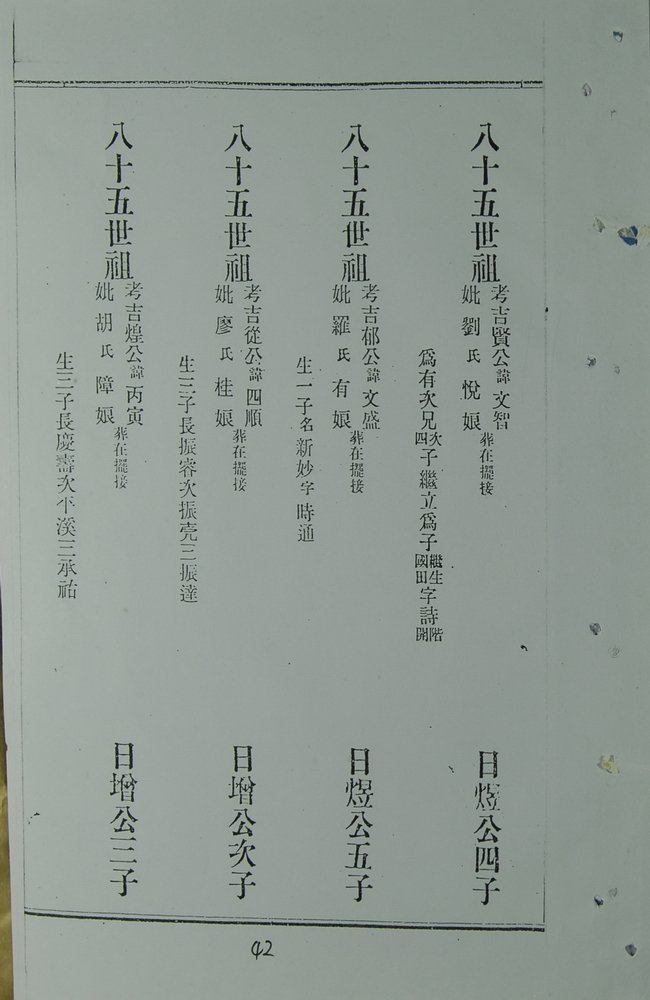 八十五世祖
考吉賢公諱文智
妣劉氏悅娘葬在擺接
為有次兄次四子繼立為子繼生國田字詩階開
日煜公四子
八十五世祖
考吉郁公諱文盛
妣羅氏有娘葬在擺接
生一子名新妙字時通
日煜公五子
八十五世祖
考吉從公諱四順
妣廖氏桂娘葬在擺接
生三子長振睿次振亮三振達
日增公次子
八十五世祖
考吉煌公諱丙寅
妣胡氏障娘葬在擺接
生三子長慶壽次平溪三承祐
日增公三子
42